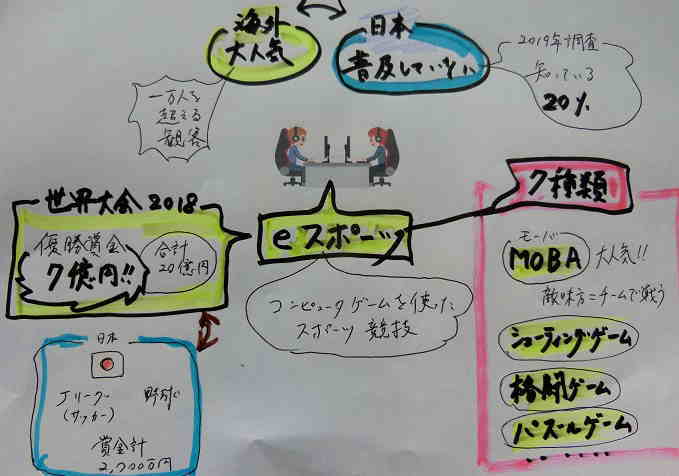 海外
大人気
日本
普及していない
2019年調査
知っている
20%
一万人を
超える
観客
世界大会 2018
優勝賞金
7億円!!
合計
20億円
eスポーツ
コンピュータゲームを使った
スポーツ競技
7種類
モーバ
MOBA
大人気!!
敵味方=チームで戦う
シューティングゲーム
格闘ゲーム
パズルゲーム
・・・・・・
日本
Jリーグ
(サッカー)
野球
賞金計
2,7000万円